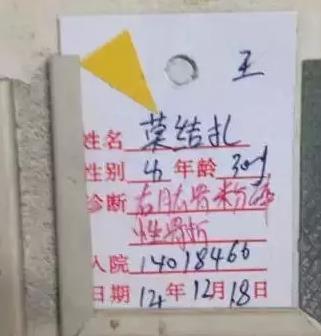 王
姓名 莫结扎
性别 女 年龄 30y
诊断 右肱骨粉碎
性骨折
入院 14018466
日期 12年12月18日